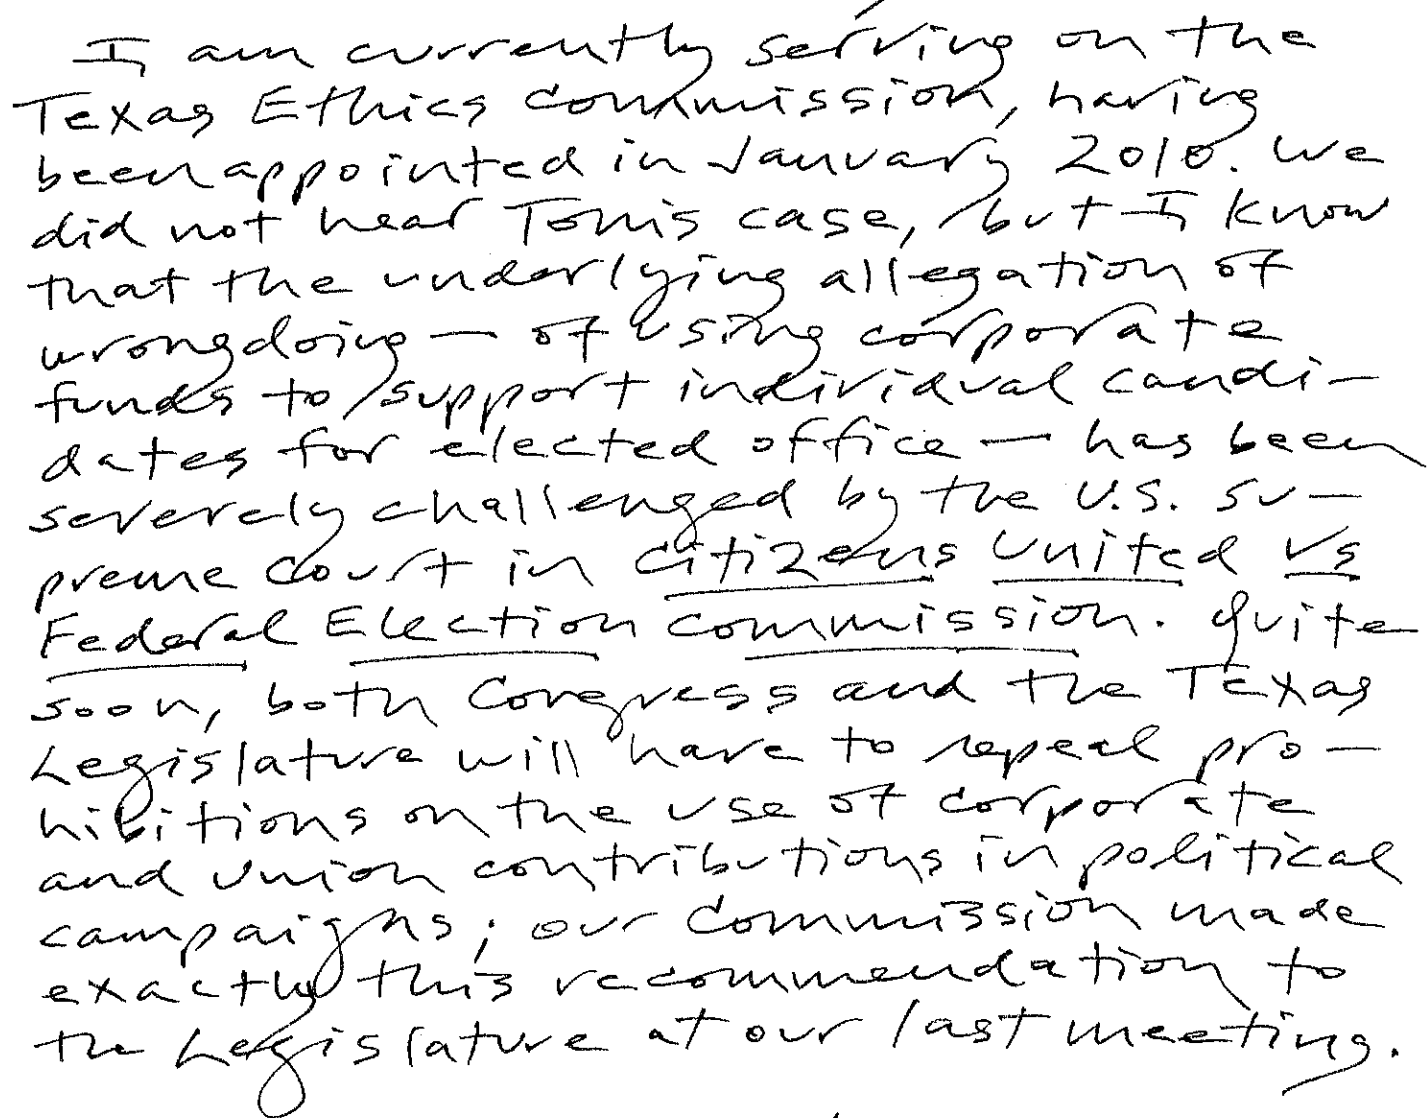 I am currently serving on the
Texas Ethics Commission, having
been appointed in January 2010. We
did not hear Tom's case, but I know
that the underlying allegation of
wrongdoing — of using corporate
funds to support individual candi-
dates for elected office — has been
severely challenged by the U.S. Su-
preme Court in Citizens United Vs
Federal Election Commission. Quite
soon, both Congress and the Texas
Legislature will have to repeal pro-
hibitions on the use of corporate
and union contributions in political
campaigns; our Commission made
exactly this recommendation to
the Legislature at our last meeting.